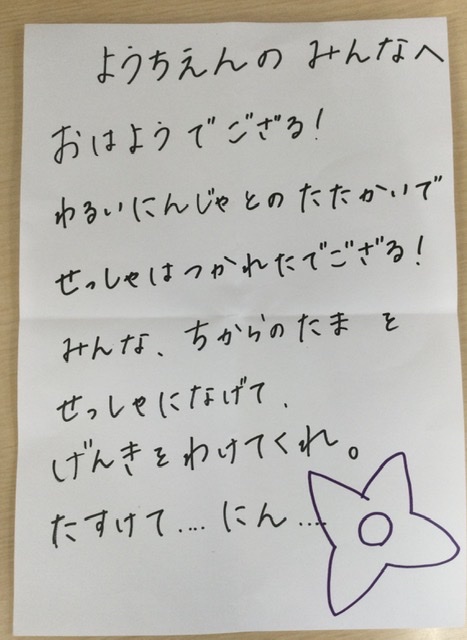 ようちえんの みんなへ
おはようでござる！
わるいにんじゃとのたたかいで
せっしゃはつかれたでござる！
みんな、ちからのたま を
せっしゃになげて、
げんきをわけてくれ。
たすけて....にん....